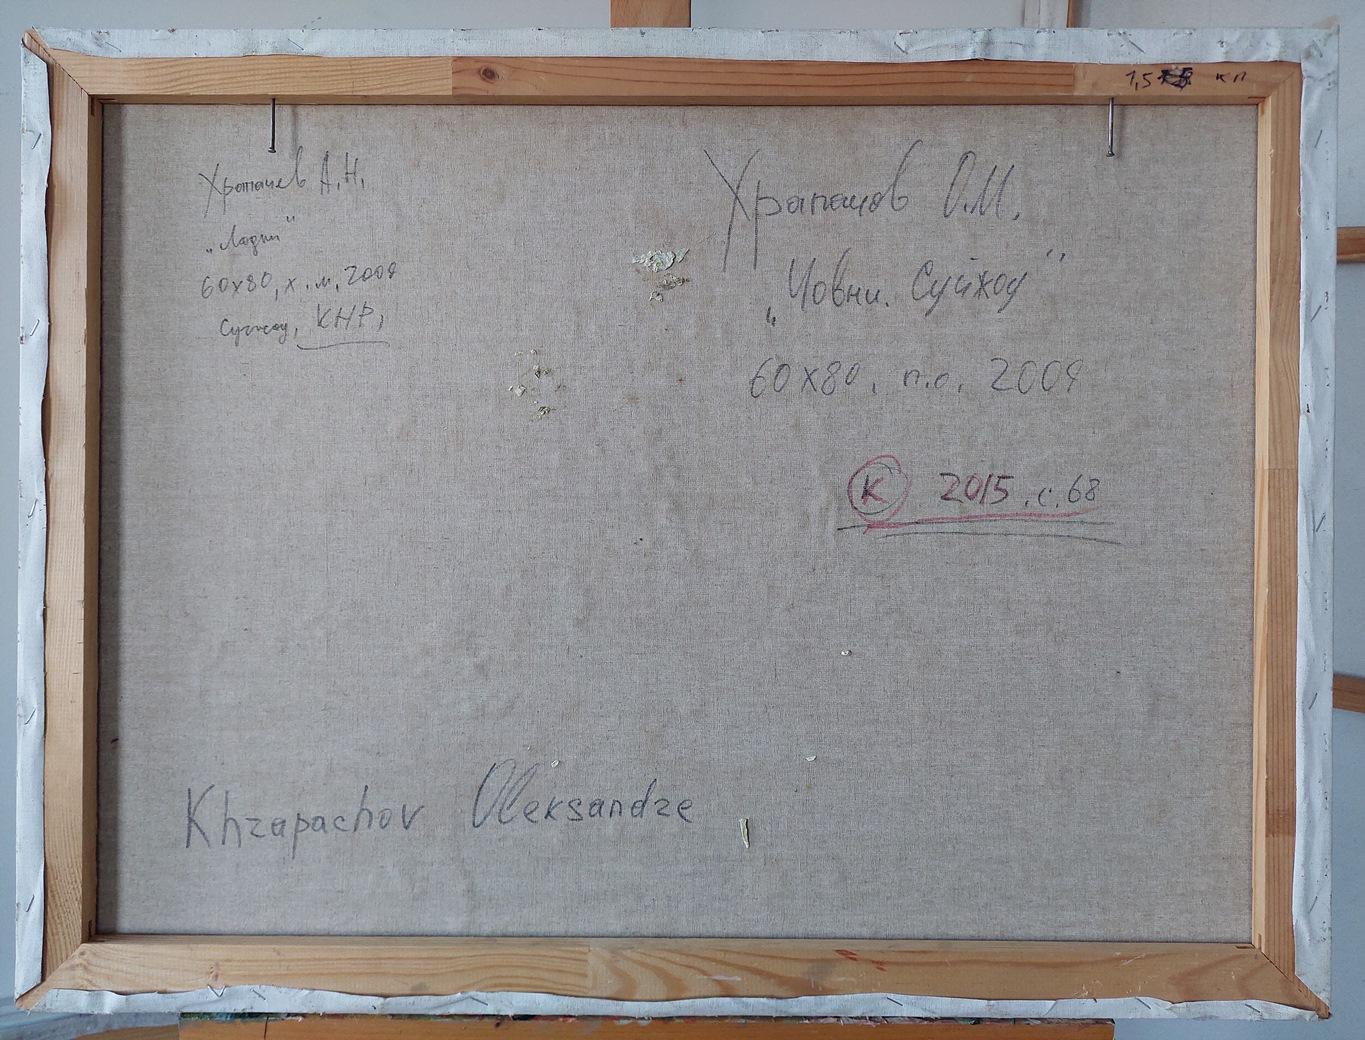 1,5 кп
Храпачев А.Н.
„Лодки"
60х80, х.м. 2009
Сучжоу, КНР,
Храпачов О.М.
„Човни. Суйжоу"
60х80, п.о. 2009
К 2015, с. 68
Khrapachov Oleksandre